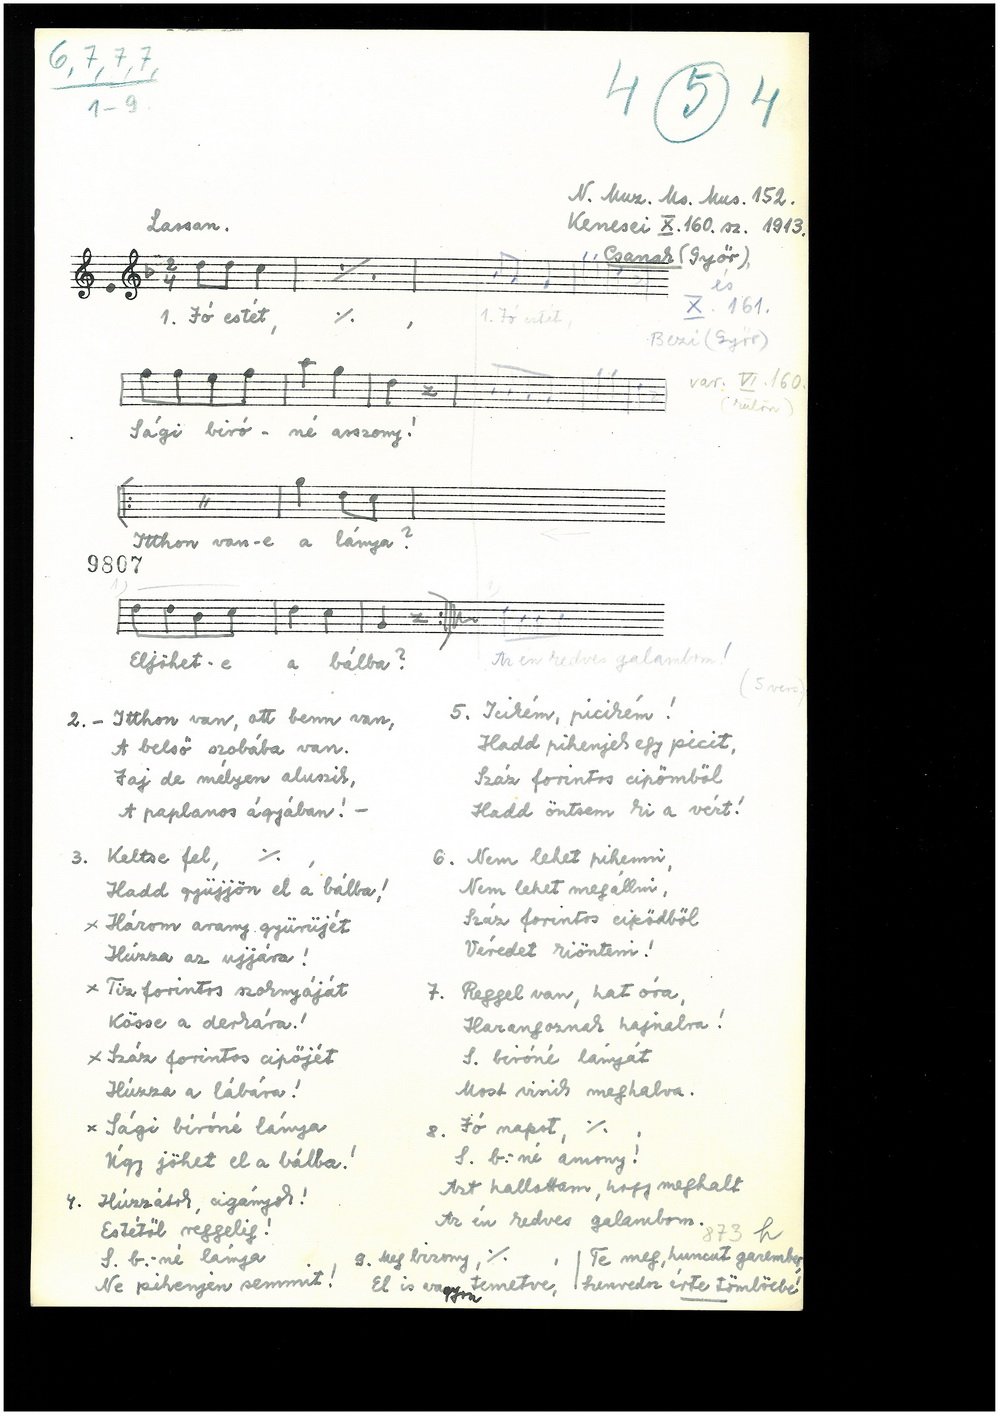 6, 7, 7, 7,
1-9.
4 5 4
N. Muz. Ms. Mus. 152.
Kenesei X. 160. sz. 1913.
Csanak (Győr),
és
X. 161.
Bezi (Győr)
var. VI. 160.
(külön)
Lassan.
1. Jó estét, ·/. , 1. Jó estét,
Sági biró - né asszony!
Itthon van-e a lánya?
9807
1) 1)
Eljöhet-e a bálba? Az én kedves galambom!
(5 vers)
2. - Itthon van, ott benn van,
A belső szobába van.
Jaj de mélyen aluszik,
A paplanos ágyában! -
3. Keltse fel, ·/. ,
Hadd gyüjjön el a bálba!
x Három arany gyürüjét
Húzza az ujjára!
x Tiz forintos szoknyáját
Kösse a derkára!
x Száz forintos cipőjét
Húzza a lábára!
x Sági biróné lánya
Úgy jöhet el a bálba!
4. Húzzátok, cigányok!
Estétől reggelig!
S. b.-né lánya
Ne pihenjen semmit!
5. Icikém, picikém!
Hadd pihenjek egy picit,
Száz forintos cipőmből
Hadd öntsem ki a vért!
6. Nem lehet pihenni,
Nem lehet megállni,
Száz forintos cipődből
Véredet kiönteni!
7. Reggel van, hat óra,
Harangoznak hajnalra!
S. biróné lányát
Most viszik meghalva.
8. Jó napot, ·/. ,
S. b.-né asszony!
Azt hallottam, hogy meghalt
Az én kedves galambom.
873 h
9. Meg bizony, ·/. ,
El is vagyon temetve,
Te meg, huncut gazember,
Szenvedsz érte tömlöcbe!